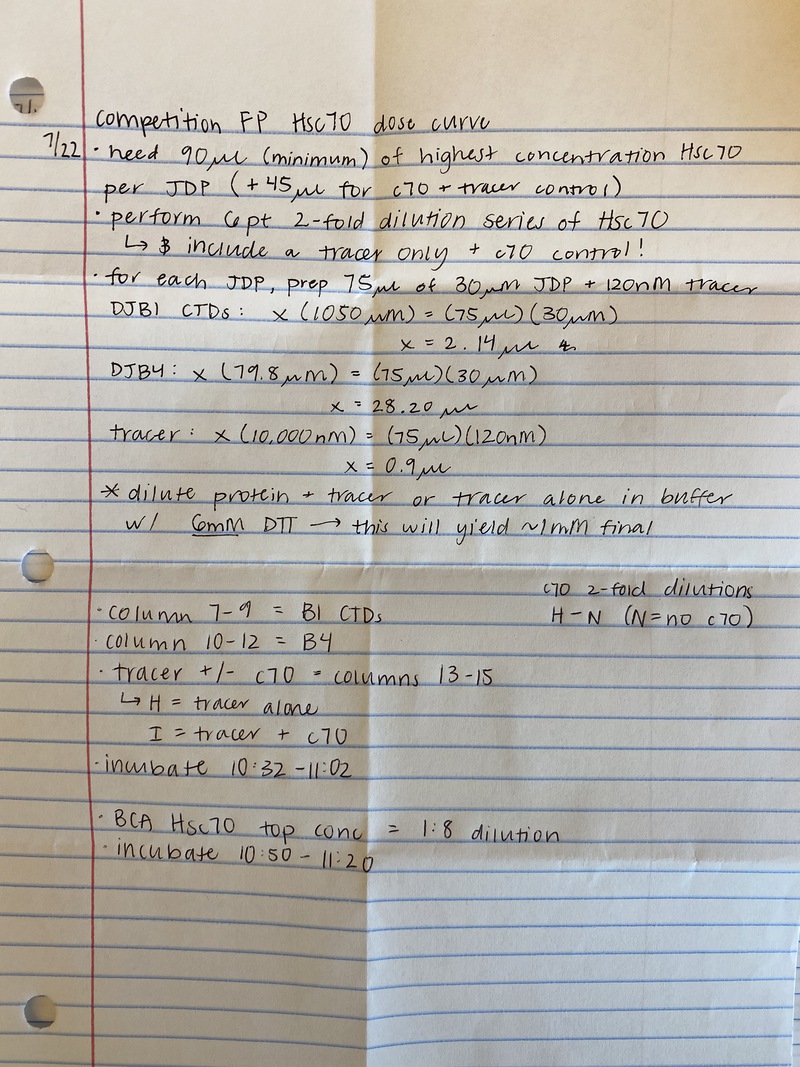 competition FP Hsc70 dose curve
7/22 • need 90µL (minimum) of highest concentration Hsc70
per JDP (+45µL for c70 + tracer control)
• perform 6pt 2-fold dilution series of Hsc70
↳ include a tracer only + c70 control!
• for each JDP, prep 75µL of 30µM JDP + 120nM tracer
DJB1 CTDs: x (1050µM) = (75µL)(30µM)
x = 2.14µL
DJB4: x (79.8µM) = (75µL)(30µM)
x = 28.20µL
tracer: x (10,000nM) = (75µL)(120nM)
x = 0.9µL
* dilute protein + tracer or tracer alone in buffer
w/ 6mM DTT → this will yield ~1mM final
c70 2-fold dilutions
H-N (N=no c70)
• column 7-9 = B1 CTDs
• column 10-12 = B4
• tracer +/- c70 = columns 13-15
↳ H = tracer alone
I = tracer + c70
• incubate 10:32-11:02
• BCA Hsc70 top conc = 1:8 dilution
• incubate 10:50-11:20